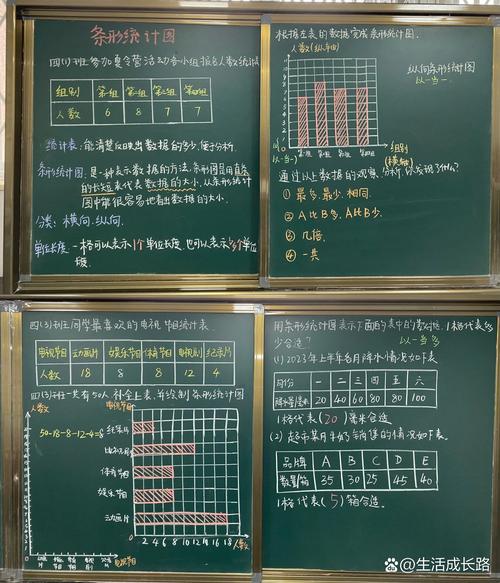 条形统计图
四(1)班参加夏令营活动各小组报名人数统计表
组别 第一组 第二组 第三组 第四组
人数 6 8 7 7
统计表：能清楚反映出数据的多少，便于分析。
条形统计图：是一种表示数据的方法，条形图是用直条
的长短来代表数据的大小，从条形统计
图中能很容易地看出数据的大小。
分类：横向、纵向。
单位长度：一格可以表示1个单位长度，也可以表示多个单位
长度
根据左表的数据完成条形统计图。
人数(纵轴)
纵向条形统计图
以一当一
10
9
8
7
6
5
4
3
2
1
0
(以一当一)
第一组 第二组 第三组 第四组
组别
(横轴)
通过以上数据的观察、分析，你发现了什么？
① 最多、最少、相同。
② A比B多，A比B少。
③ 几倍
④ 一共
四(3)班同学最喜欢的电视节目统计表
电视节目 动画片 娱乐节目 体育节目 电视剧 纪录片
人数 18 8 8 12 4
四(3)班一共有50人，补全上表，并绘制条形统计图
人数
电视节目
50-18-8-12-4=8
纪录片
电视剧
体育节目
娱乐节目
动画片
2 4 6 8 10 12 14 16 18 人数
电视节目
用条形统计图表示下面的表中的数据，1格代表多
少合适？
以一当多
(1) 2023年上半年各月降水情况如下表
月份 一 二 三 四 五 六
降水量/毫米 20 40 60 80 80 100
1格代表(20)毫米合适
(2) 超市某月牛奶销售的情况如下表。
品牌 A B C D E
数量/箱 35 30 25 45 40
1格代表(5)箱合适。
@生活成长路